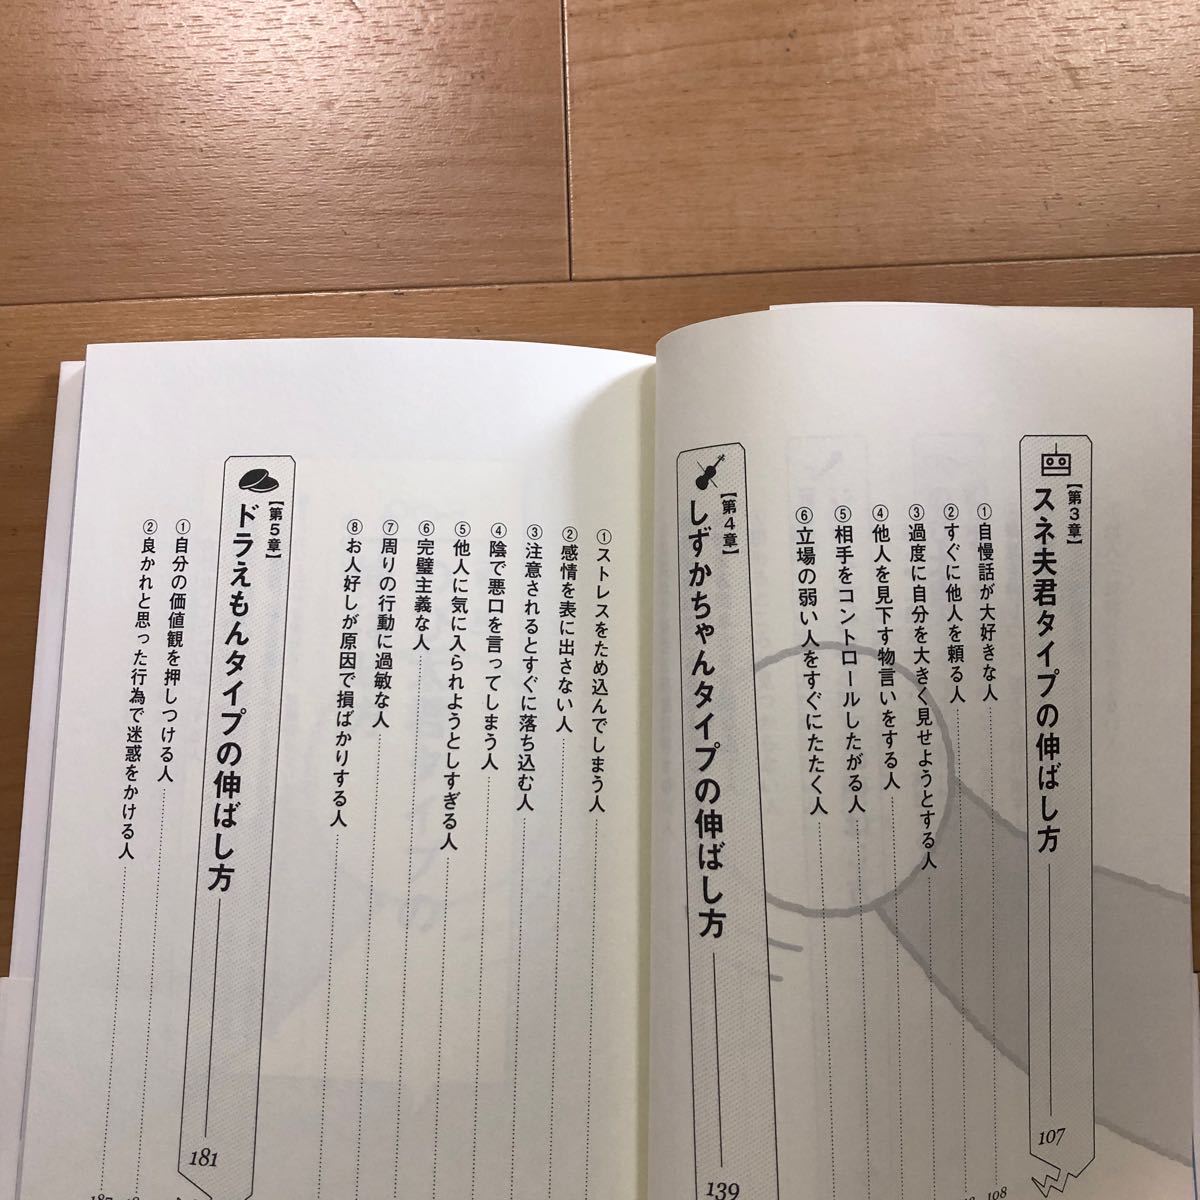 【第3章】
スネ夫君タイプの伸ばし方
107
①自慢話が大好きな人
108
②すぐに他人を頼る人
③過度に自分を大きく見せようとする人
④他人を見下す物言いをする人
⑤相手をコントロールしたがる人
⑥立場の弱い人をすぐにたたく人
【第4章】
しずかちゃんタイプの伸ばし方
139
①ストレスをため込んでしまう人
②感情を表に出さない人
③注意されるとすぐに落ち込む人
④陰で悪口を言ってしまう人
⑤他人に気に入られようとしすぎる人
⑥完璧主義な人
⑦周りの行動に過敏な人
⑧お人好しが原因で損ばかりする人
【第5章】
ドラえもんタイプの伸ばし方
181
①自分の価値観を押しつける人
②良かれと思った行為で迷惑をかける人